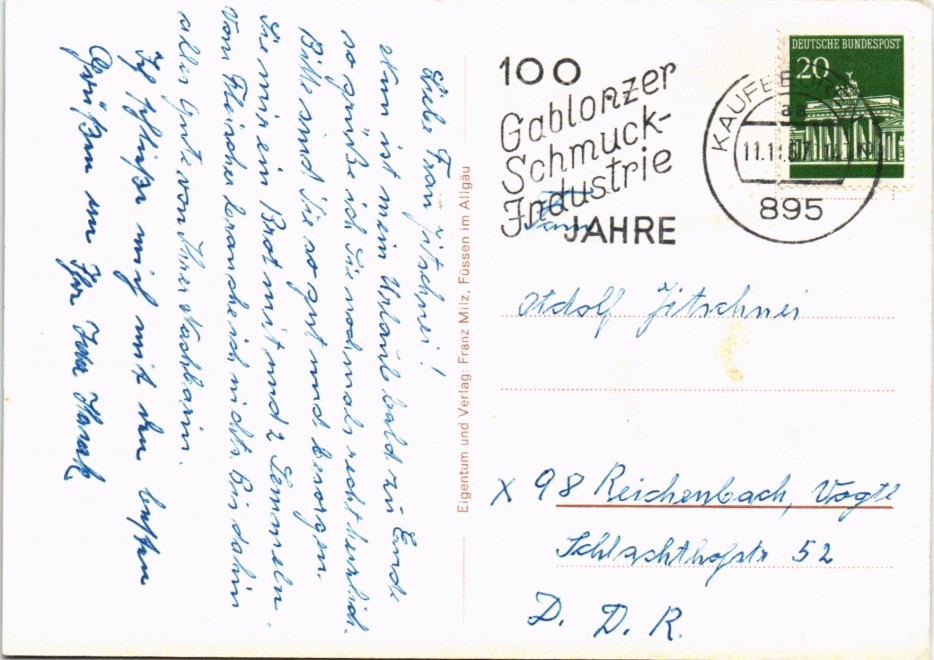 Liebe Frau Jitschnei!
Nun ist mein Urlaub bald zu Ende
so grüße ich Sie nochmals recht herzlich.
Bitte sind Sie so gut und besorgen
Sie mir ein Brot mit und 2 Semmeln.
Vom Fleischer brauche ich nichts. Bis dahin
alles Gute von Ihrer Nachbarin.
Ich schließe mich mit den besten
Grüßen an Ihr
Eigentum und Verlag: Franz Milz, Füssen im Allgäu
100
Gablonzer
Schmuck-
Industrie
JAHRE
DEUTSCHE BUNDESPOST
20
KAUFBEUREN
895
Adolf Jitschnei
X 98 Reichenbach, Vogtl
Schlachthofstr 52
D. D. R.